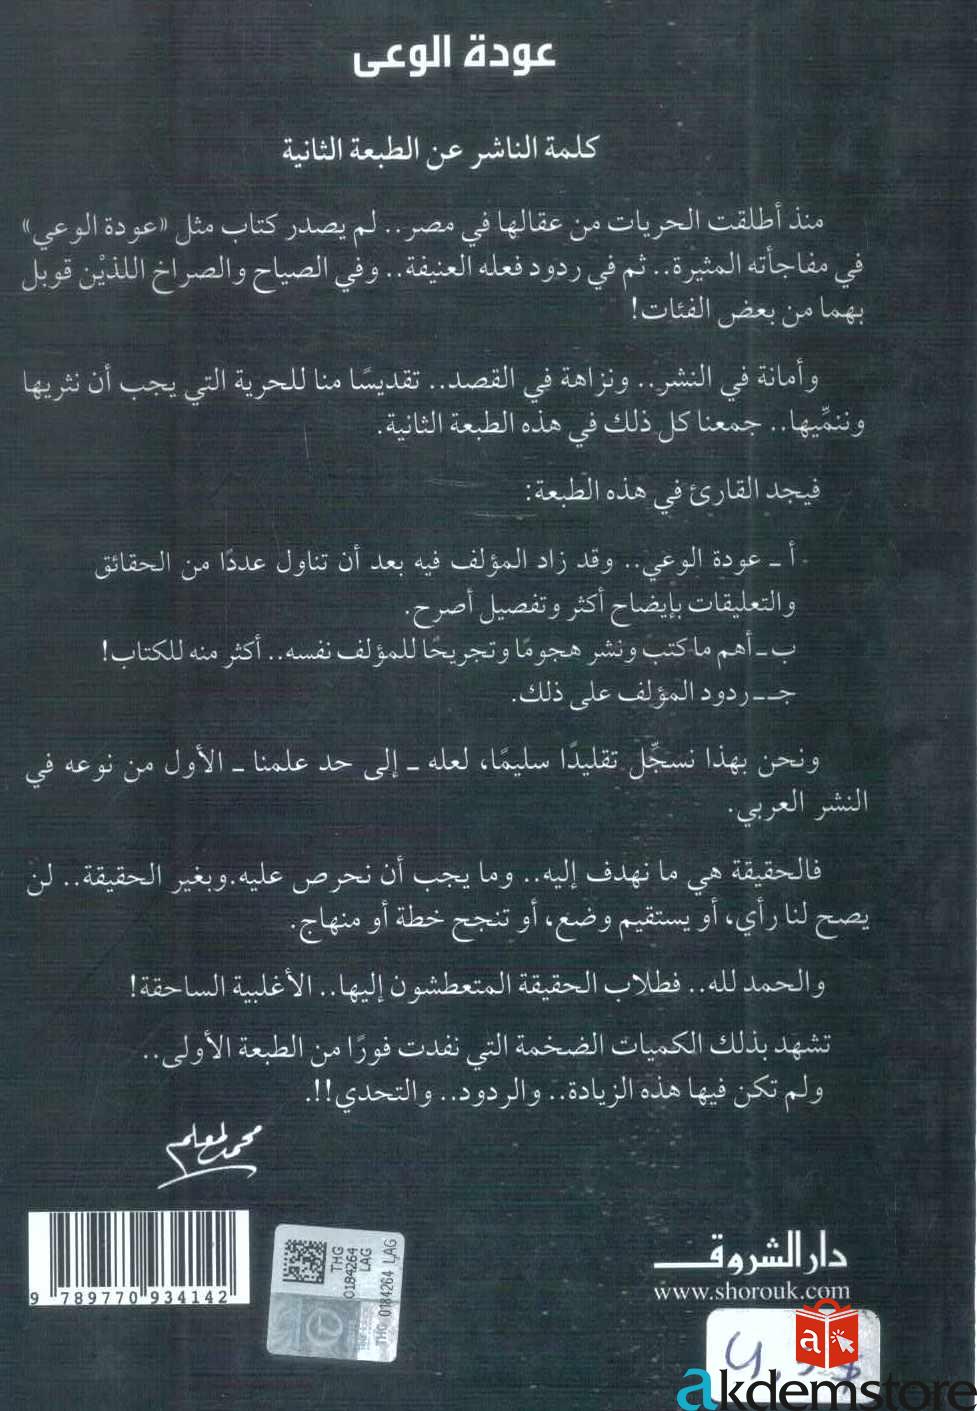 عودة الوعى
كلمة الناشر عن الطبعة الثانية
منذ أطلقت الحريات من عقالها في مصر.. لم يصدر كتاب مثل «عودة الوعي»
في مفاجأته المثيرة.. ثم في ردود فعله العنيفة.. وفي الصياح والصراخ اللذيْن قوبل
بهما من بعض الفئات!
وأمانة في النشر.. ونزاهة في القصد.. تقديسًا منا للحرية التي يجب أن نثريها
وننمِّيها.. جمعنا كل ذلك في هذه الطبعة الثانية.
فيجد القارئ في هذه الطبعة:
أ ـ عودة الوعي.. وقد زاد المؤلف فيه بعد أن تناول عددًا من الحقائق
والتعليقات بإيضاح أكثر وتفصيل أصرح.
ب ـ أهم ما كتب ونشر هجومًا وتجريحًا للمؤلف نفسه.. أكثر منه للكتاب!
جـ ـ ردود المؤلف على ذلك.
ونحن بهذا نسجِّل تقليدًا سليمًا، لعله ـ إلى حد علمنا ـ الأول من نوعه في
النشر العربي.
فالحقيقة هي ما نهدف إليه.. وما يجب أن نحرص عليه.وبغير الحقيقة.. لن
يصح لنا رأي، أو يستقيم وضع، أو تنجح خطة أو منهاج.
والحمد لله.. فطلاب الحقيقة المتعطشون إليها.. الأغلبية الساحقة!
تشهد بذلك الكميات الضخمة التي نفدت فورًا من الطبعة الأولى..
ولم تكن فيها هذه الزيادة.. والردود.. والتحدي!!.
محمد المعلم
9 789770 934142
THG
0184264
LAG
THG 0184264 LAG
دار الشروق
www.shorouk.com
a
akdemstore